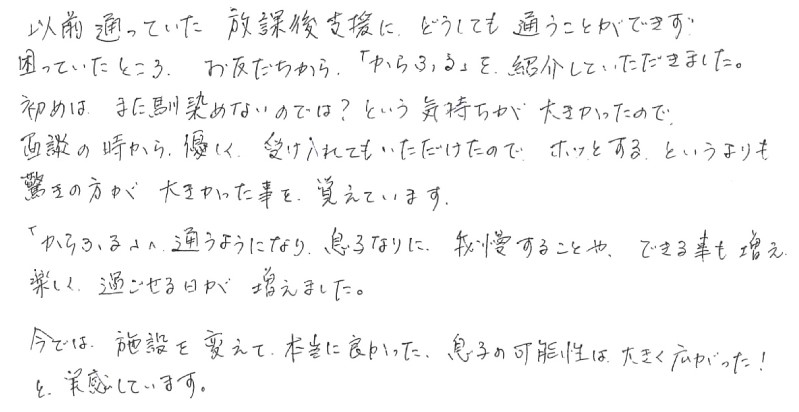 以前通っていた 放課後支援に、どうしても 通うことができず
困っていたところ、お友だちから、「からふる」を、紹介していただきました。
初めは、また馴染めないのでは？という気持ちが 大きかったので、
面談の時から、優しく、受け入れてもいただけたので、ホッとする、というよりも
驚きの方が 大きかった事を、覚えています。
「からふる」へ、通うようになり、息子なりに、我慢することや、できる事も増え、
楽しく、過ごせる日が 増えました。
今では、施設を変えて、本当に良かった、息子の可能性は、大きく広がった！
と、実感しています。